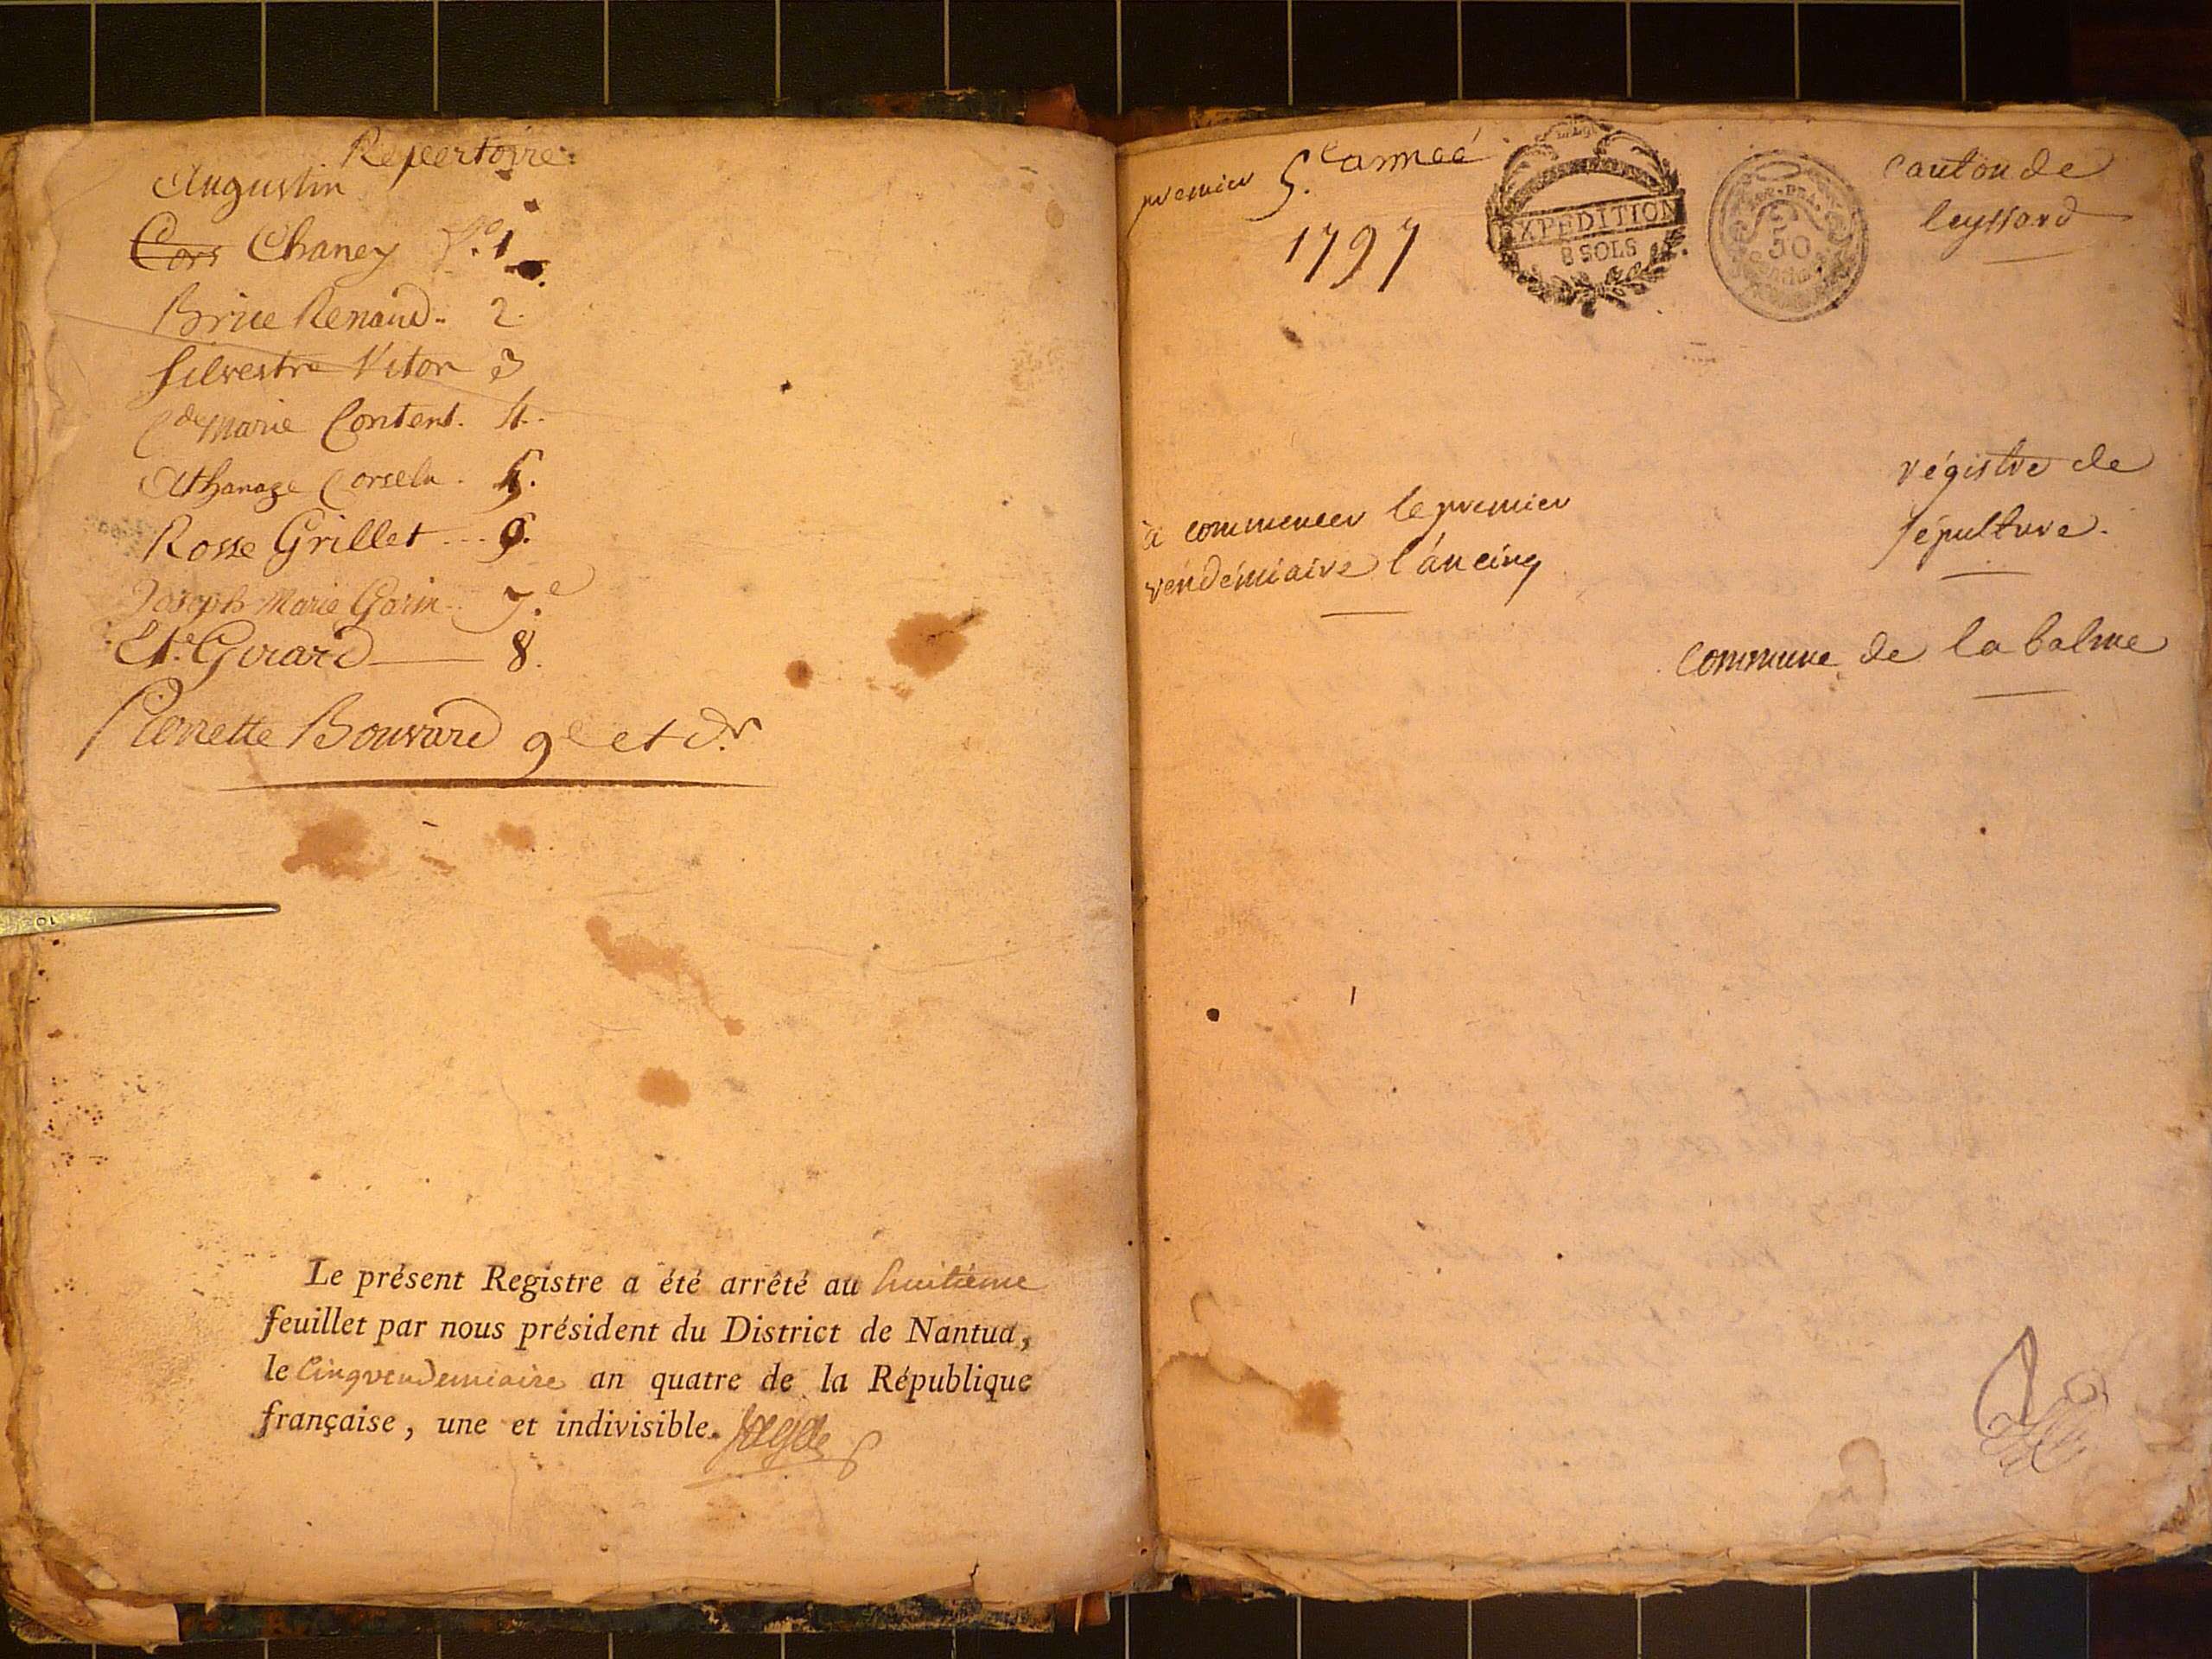 Repertoire
Augustin
Cors Chaney 1
Brice Renaud 2
Silvestre Vitor 3
Cde Marie Content. 4.
Athanaze Corselu. 5.
Rosse Grillet 6.
Joseph Marie Gorin 7.e
Et.e Girard 8.
Pierrette Bouvard 9e et d.r
Le présent Registre a été arrêté au huitième
feuillet par nous président du District de Nantua,
le Cinq vendemiaire an quatre de la République
française, une et indivisible.
premier 5.e anneé
1797
EXPEDITION
8 SOLS
50
canton de
leyssard
régistre de
sépulture.
à commencer le premier
vendémiaire l'an cinq
commune de la balme